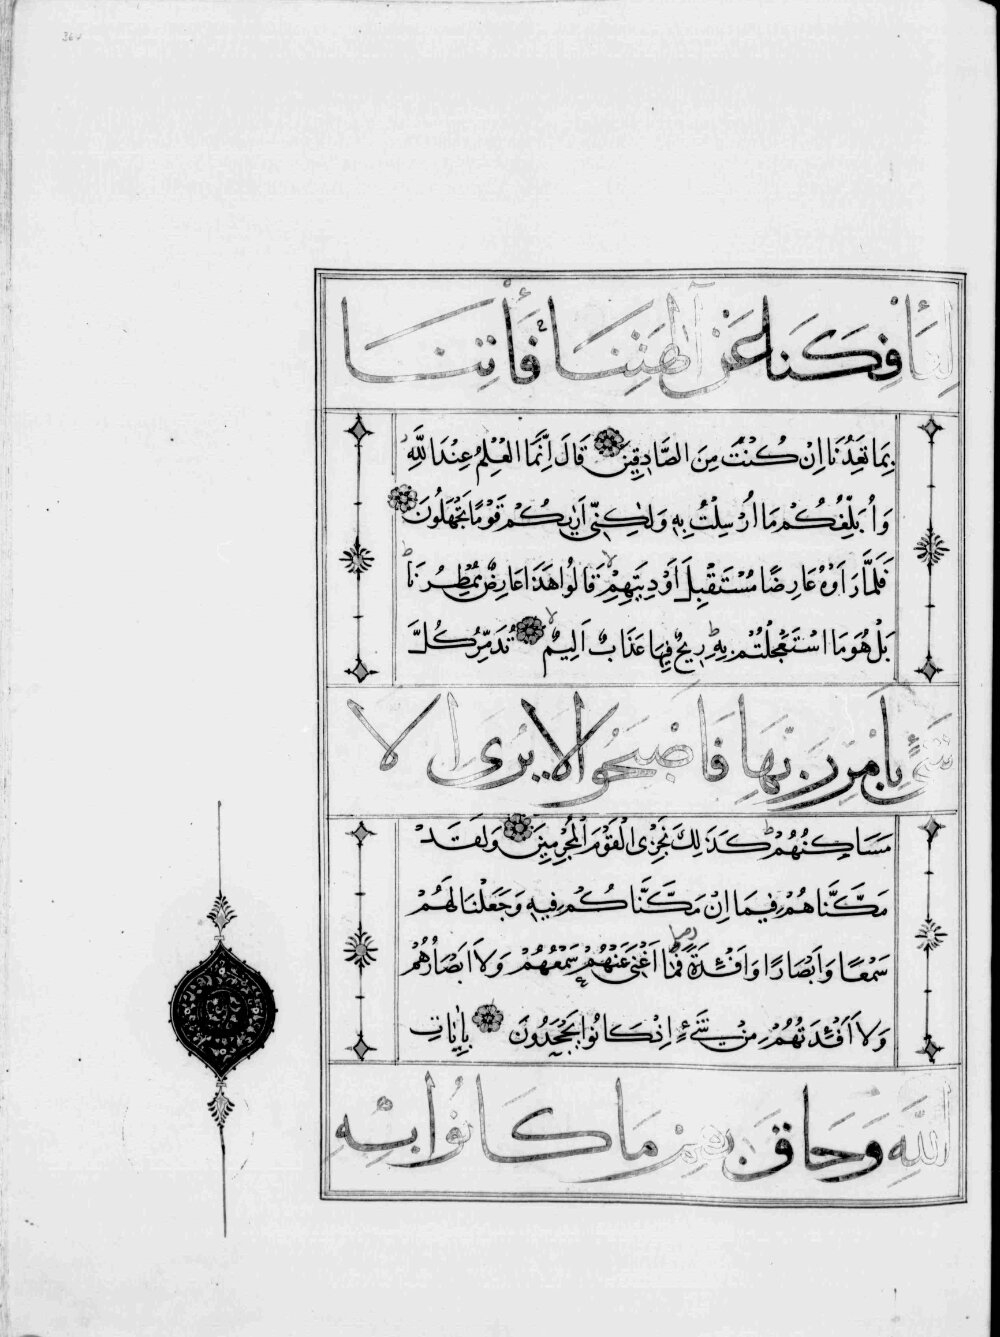 لِتَأْفِكَنَا عَنْ آلِهَتِنَا فَأْتِنَا
بِمَا تَعِدُنَا اِنْ كُنْتَ مِنَ الصَّادِقِينَ قَالَ اِنَّمَا الْعِلْمُ عِنْدَ اللَّهِ
وَاُبَلِّغُكُمْ مَا اُرْسِلْتُ بِهِ وَلٰكِنِّي اَرٰيكُمْ قَوْمًا تَجْهَلُونَ
فَلَمَّا رَاَوْهُ عَارِضًا مُسْتَقْبِلَ اَوْدِيَتِهِمْ قَالُوا هَذَا عَارِضٌ مُمْطِرُنَا
بَلْ هُوَ مَا اسْتَعْجَلْتُمْ بِهِ رِيحٌ فِيهَا عَذَابٌ اَلِيمٌ تُدَمِّرُ كُلَّ
شَيْءٍ بِأَمْرِ رَبِّهَا فَاَصْبَحُوا لَا يُرَى اِلَّا
مَسَاكِنُهُمْ كَذَلِكَ نَجْزِى الْقَوْمَ الْمُجْرِمِينَ وَلَقَدْ
مَكَّنَّاهُمْ فِيمَا اِنْ مَكَّنَّاكُمْ فِيهِ وَجَعَلْنَا لَهُمْ
سَمْعًا وَاَبْصَارًا وَاَفْئِدَةً فَمَا اَغْنَى عَنْهُمْ سَمْعُهُمْ وَلَا اَبْصَارُهُمْ
وَلَا اَفْئِدَتُهُمْ مِنْ شَيْءٍ اِذْ كَانُوا يَجْحَدُونَ بِاٰيَاتِ
اللَّهِ وَحَاقَ بِهِمْ مَا كَانُوا بِهِ